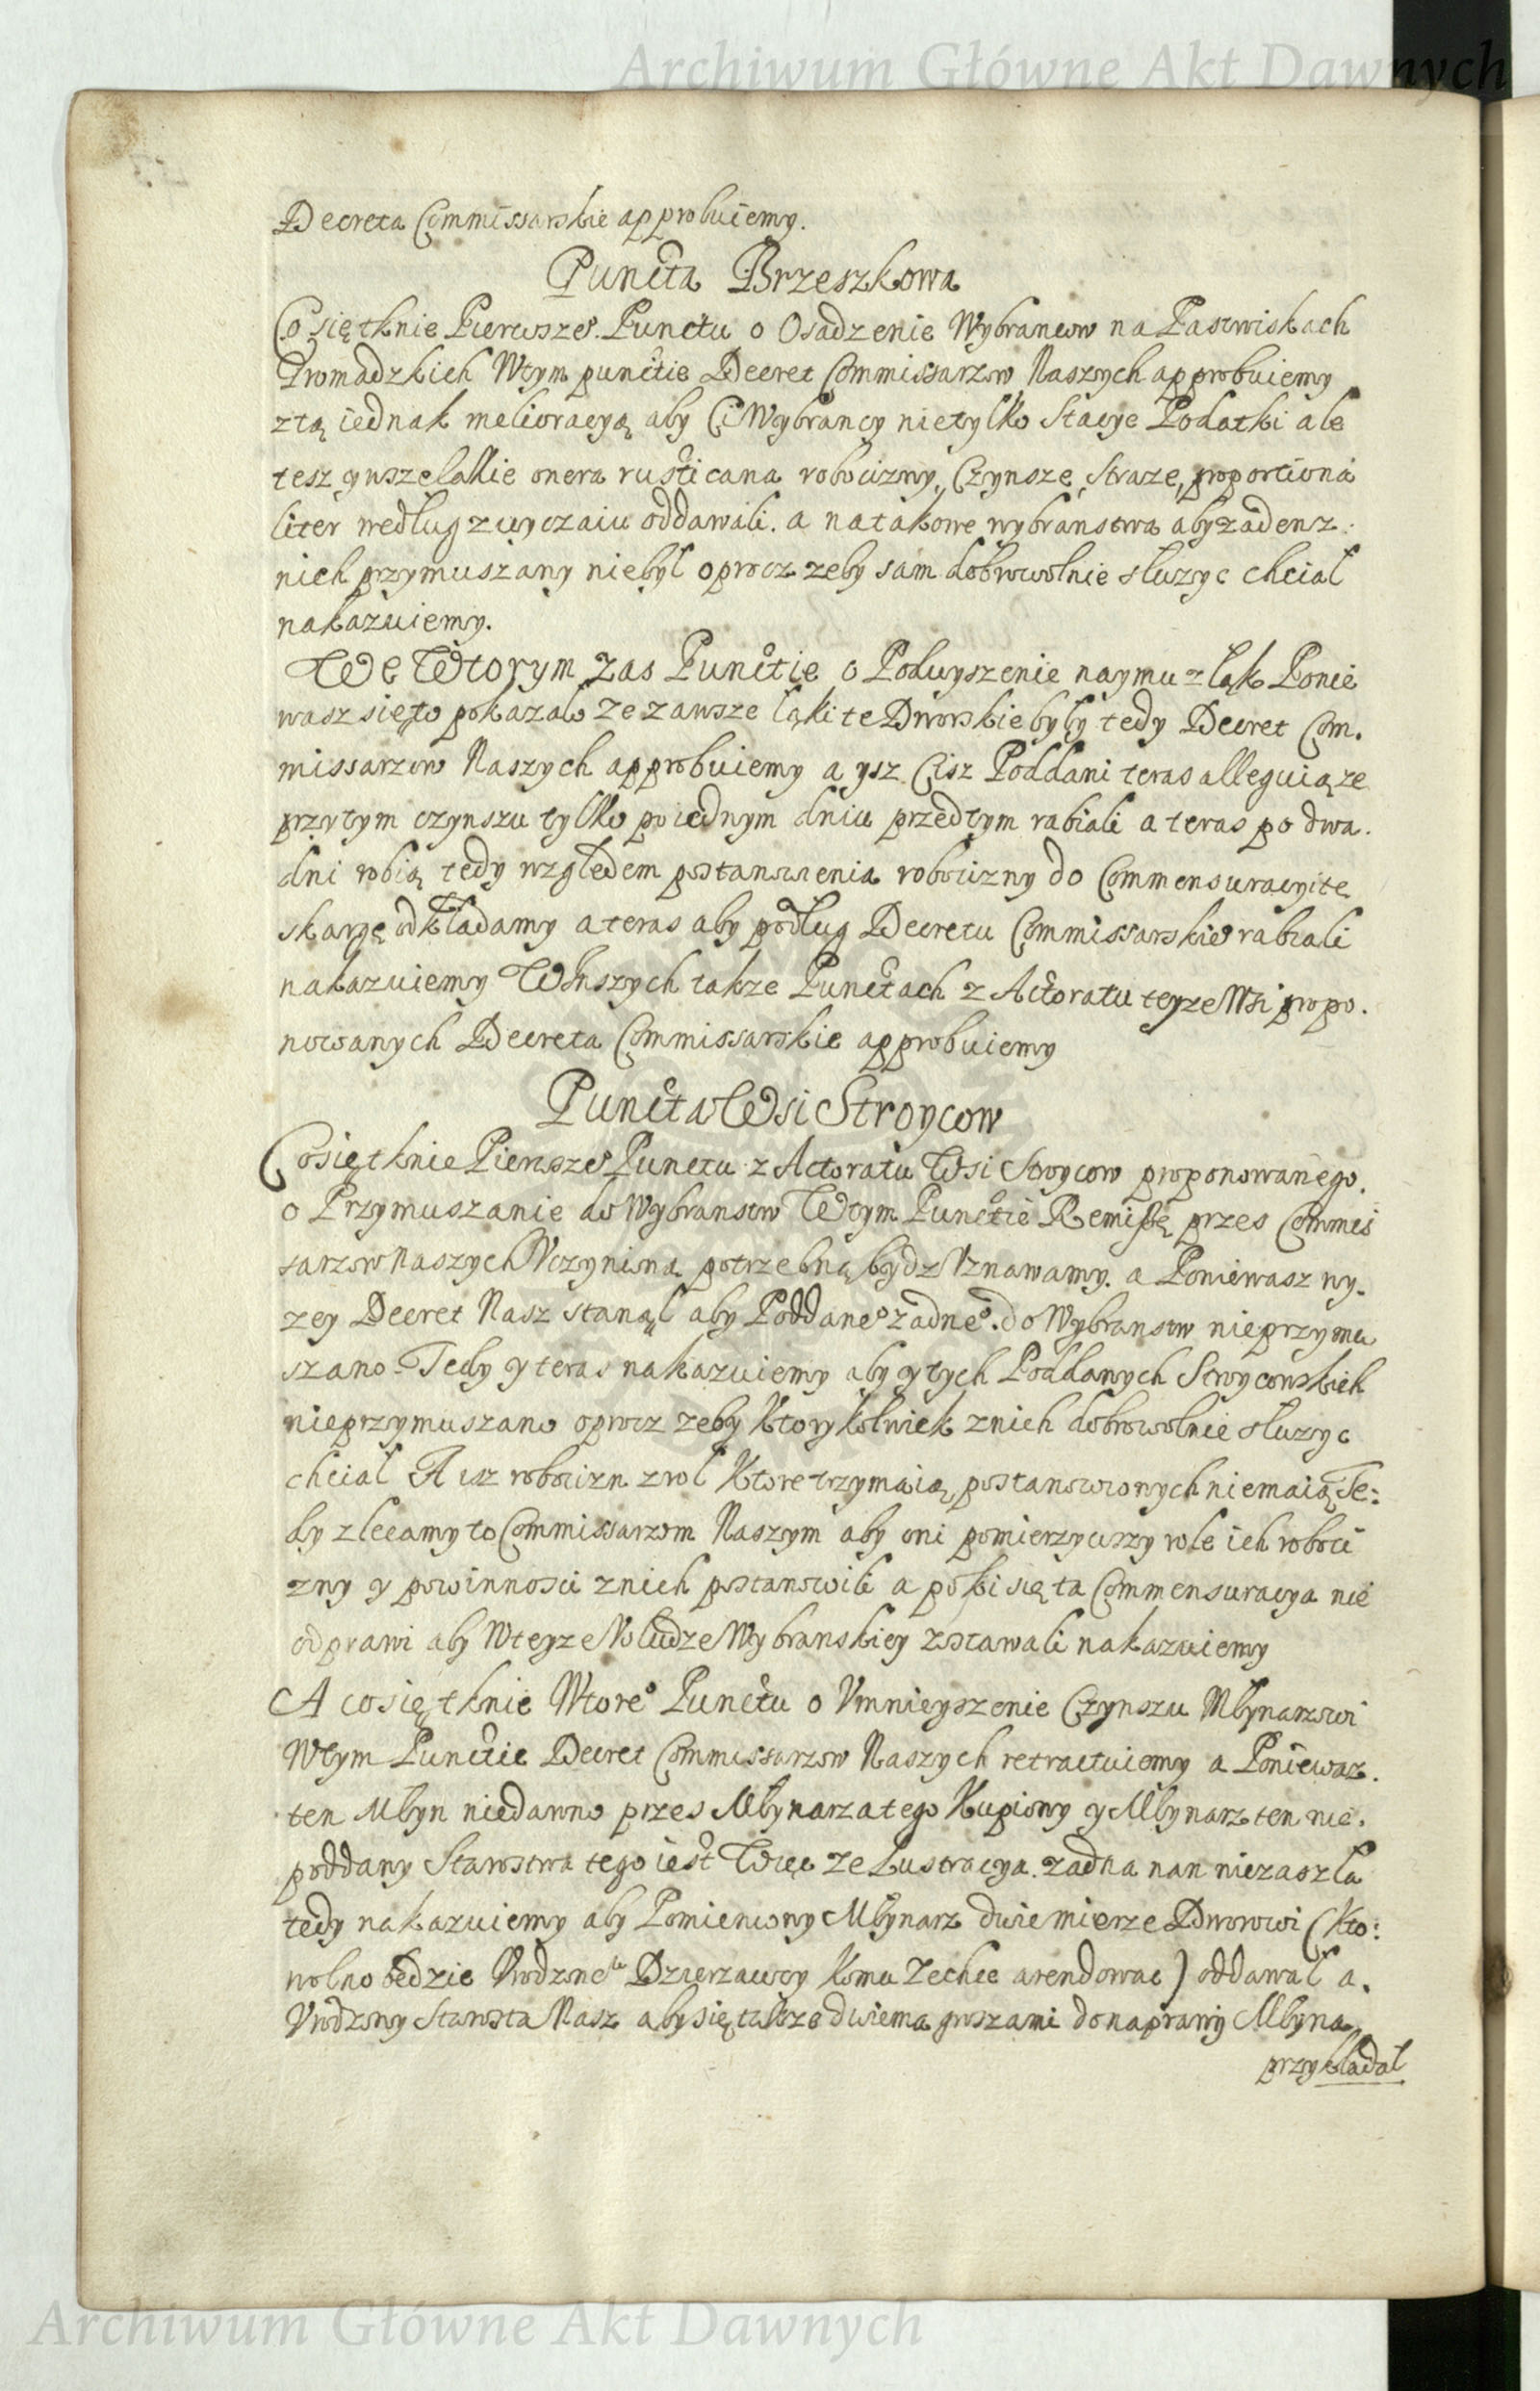 Archiwum Główne Akt Dawnych
Decreta Commissarskie approbuiemy.
Puncta Brzeszkowa
Co się tknie Pierwsze°. Punctu o Osadzenie Wybrancow na Pastwiskach
Gromadzkich Wtym punctie Decret Commissarzow Naszych approbuiemy
ztą iednak melioracyą aby Ci Wybrancy nietylko Stacye Podatki ale
tesz y wszelakie onera rusticana robocizny, Czynsze, Straze, proportiona
liter według zwyczaiu oddawali. a natakowe wybranstwa aby zaden z
nich przymuszany niebyl oprocz zeby sam dobrowolnie sluzyc chcial
nakazuiemy.
We Wtorym zas Punctie o Podwyszenie naymu z łąk Ponie
wasz się to pokazalo ze zawsze łąki te Dworskie były tedy Decret Com.
missarzow Naszych approbuiemy a ysz Cisz Poddani teras alleguią ze
przytym czynszu tylko po iednym dniu przedtym rabiali a teras po dwa.
dni robią tedy względem postanowienia robocizny do Commensuracyi tę
skargę odkładamy a teras aby podług Decretu Commissarskie° rabiali
nakazuiemy W Inszych takze Punctach z Actoratu teyze Wsi propo.
nowanych Decreta Commissarskie approbuiemy
Puncta Wsi Stroycow
Co się tknie Pierwsze° Punctu z Actoratu Wsi Stroycow proponowanego.
o Przymuszanie do Wybranstw Wtym Punctie Remissę przes Commis
sarzow Naszych Vczynioną potrzebną bydz Vznawamy. a Poniewasz wy.
zey Decret Nasz stanął aby Poddane° zadne°. do Wybranstw nieprzymu
szano. Tedy y teras nakazuiemy aby y tych Poddanych Stroycowskich
nieprzymuszano oprocz zeby Ktorykolwiek znich dobrowolnie sluzyc
chcial A isz robocizn z rol Ktore trzymaią, postanowionych niemaią Te:
dy zlecamy to Commissarzom Naszym aby oni pomierzywszy role ich roboci
zny y powinnosci znich postanowili a poki się ta Commensuracya nie
odprawi aby Wteyze Vołudze Wybranskiey zostawali nakazuiemy
A co się tknie Wtore° Punctu o Vmnieyszenie Czynszu Młynarzowi
Wtym Punctie Decret Commissarzow Naszych retractuiemy a Poniewaz.
ten Młyn niedawno przes Młynarza tego Kupiony y Młynarz ten nie.
poddany Starostwa tego iest Więc ze Lustracya zadna nan niezaszla
tedy nakazuiemy aby Pomieniony Młynarz dwie mierze Dworowi (Kto:
wolno będzie Vrodzone^u Dzierzawcy Komu Zechce arendowac) oddawal a.
Vrodzony Starosta Nasz aby się takze dwiema groszami do naprawy Młyna
przykladal
Archiwum Główne Akt Dawnych